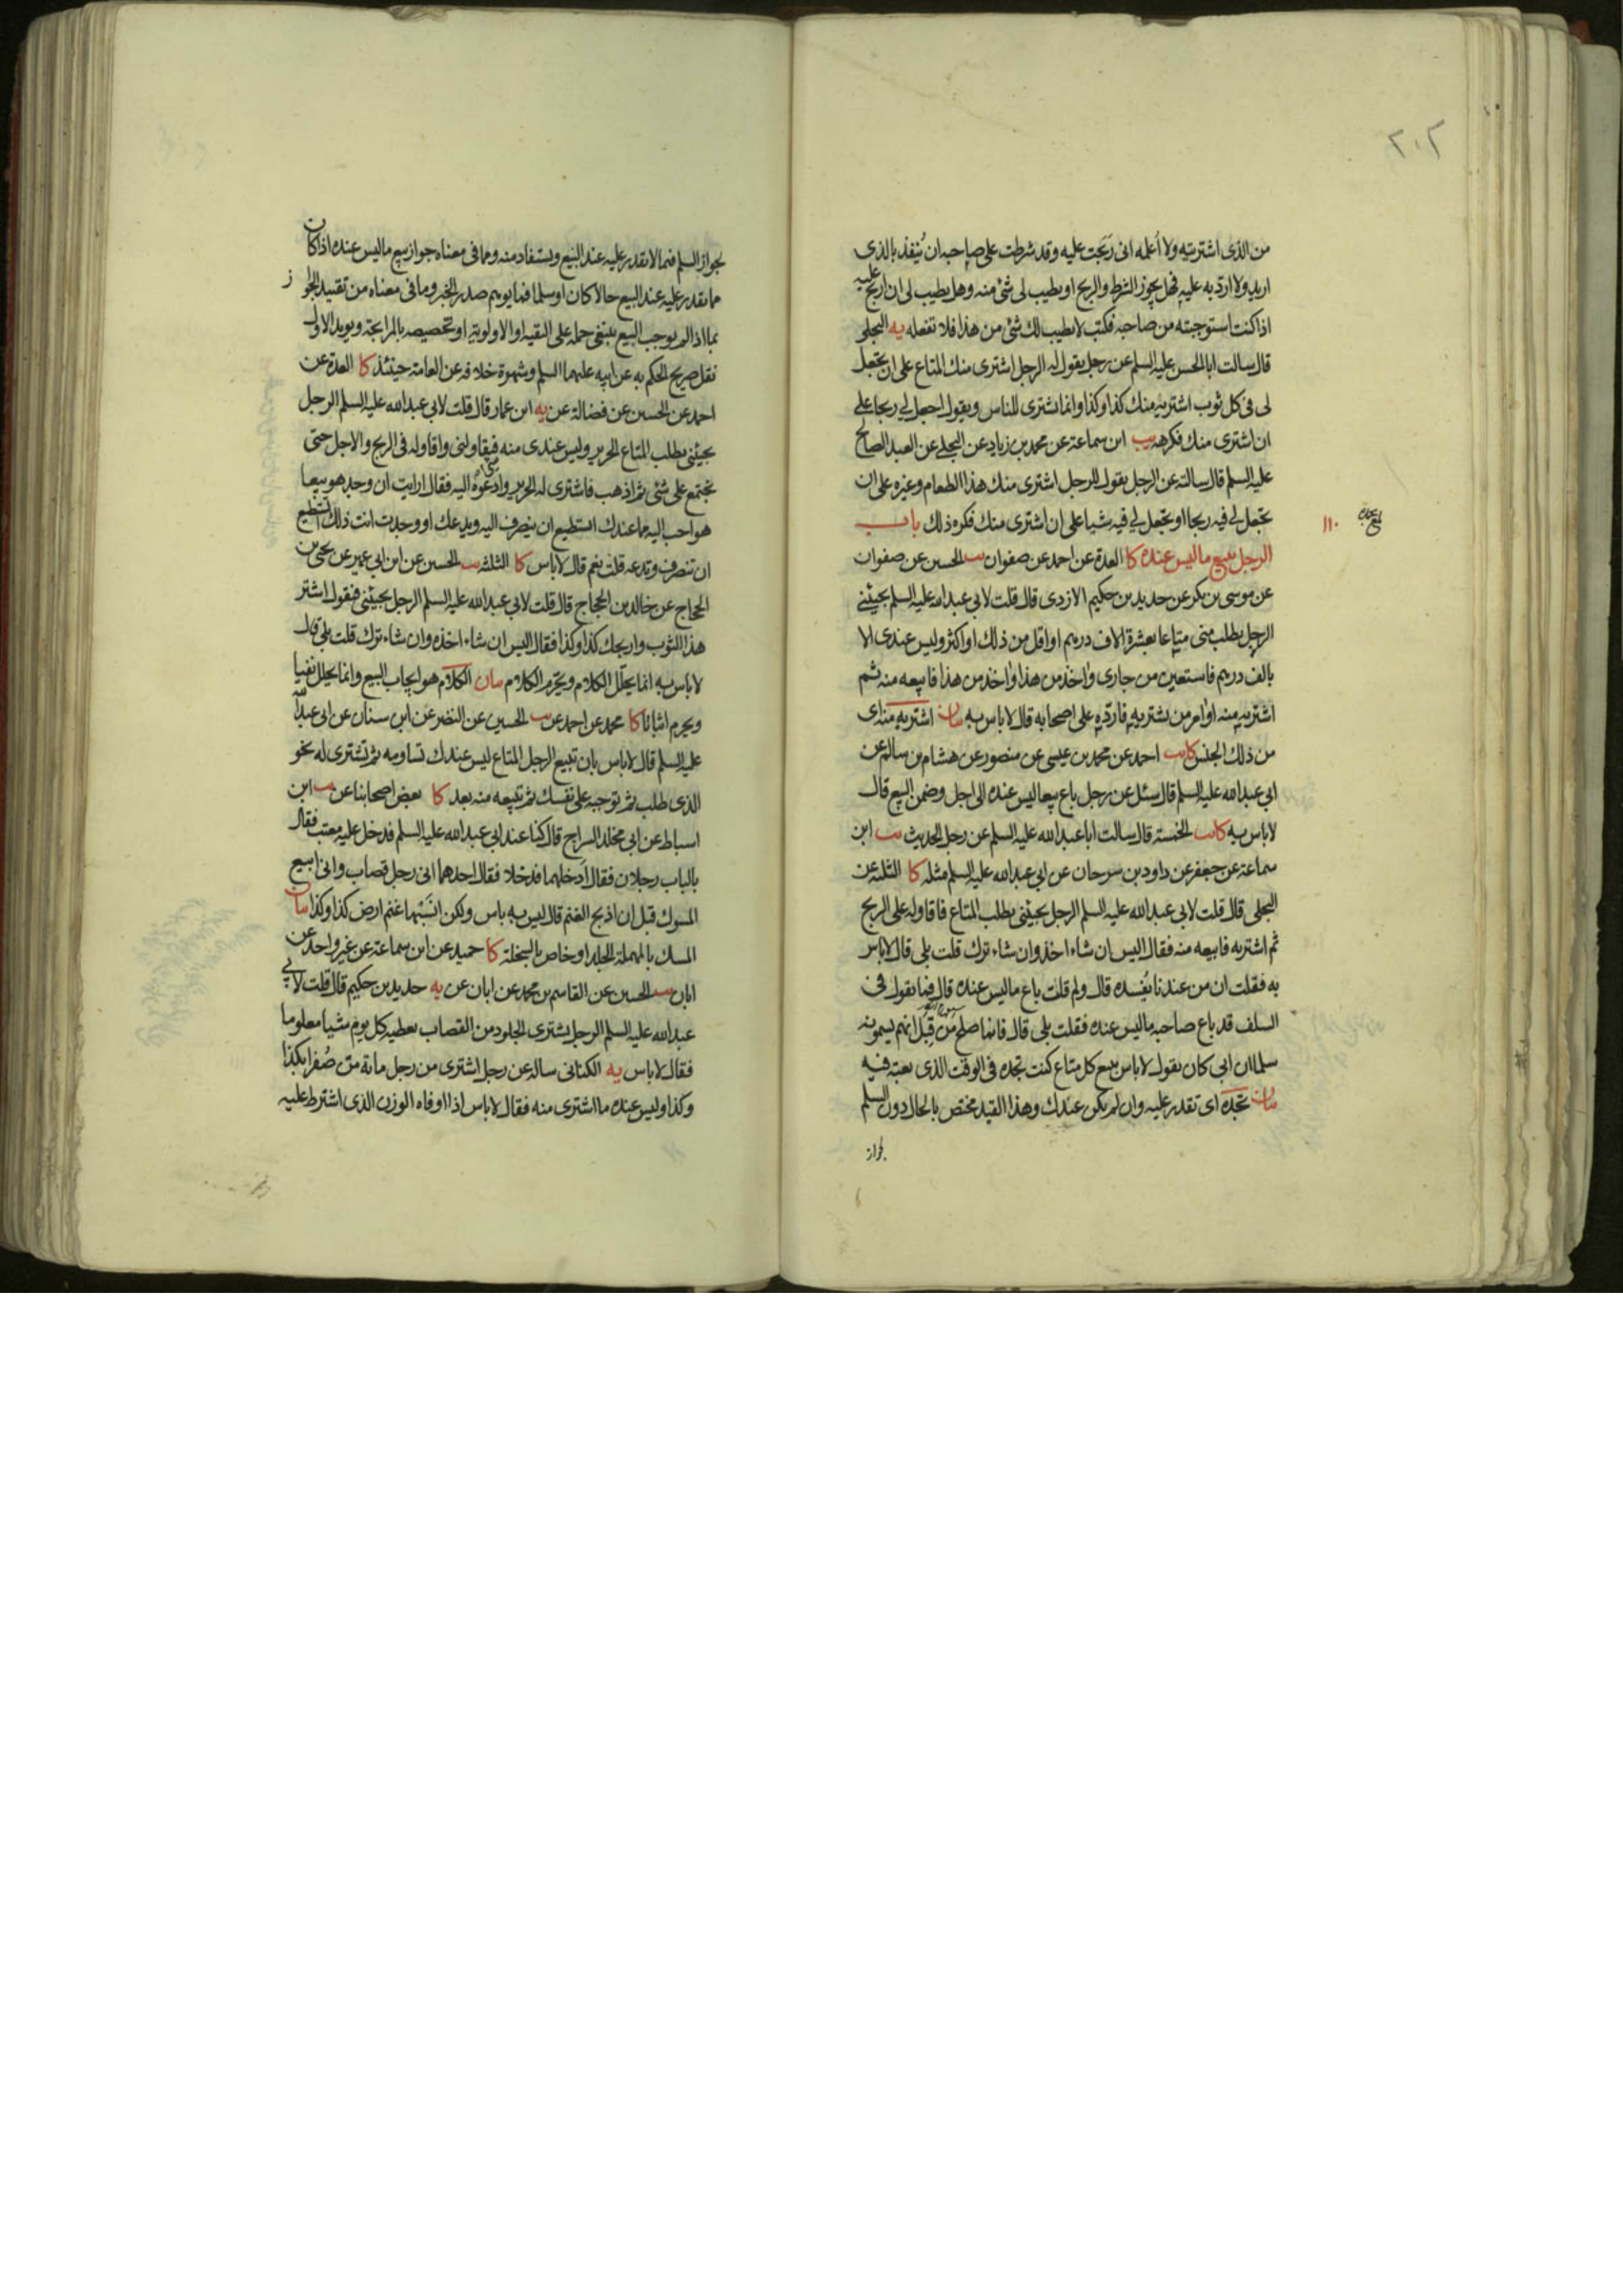 ٢٠٢
من الذى اشتريته ولا أعلمه انى ربحت عليه وقد شرطت على صاحبه ان ينفذ بالذى
اريد ولا ارد به عليه فهل يجوز الشرط والربح او يطيب لى شئ منه وهل يطيب لى ان اربح عليه
اذا كنت استوجبته من صاحبه فكتب لا يطيب لك شئ من هذا فلا تفعله يه البجلى
قال سالت ابا الحسن عليه السلم عن رجل يقول له الرجل اشترى منك المتاع على ان تجعل
لى فى كل ثوب اشتريه منك كذا وكذا وانما اشترى للناس ويقول اجعل لى ربحا على
ان اشترى منك فكرهه يب ابن سماعة عن محمد بن زياد عن البجلى عن العبد الصالح
عليه السلم قال سالته عن الرجل يقول للرجل اشترى منك هذا الطعام وغيره على ان
تجعل لى فيه ربحا او تجعل لى فيه شيا على ان اشترى منك فكره ذلك باب
١١٠
الرجل يبيع ما ليس عنده كا العدة عن احمد عن صفوان يب الحسين عن صفوان
عن موسى بن بكر عن حديد بن حكيم الازدى قال قلت لابى عبد الله عليه السلم يجيئنى
الرجل يطلب منى متاعا بعشرة الاف درهم او اقل من ذلك او اكثر وليس عندى الا
بالف درهم فاستعين من جارى واخذ من هذا واخذ من هذا فابيعه منه ثم
اشتريه منه او امر من يشتريه فارده على اصحابه قال لاباس به بيان اشتريه منه اى
من ذلك الجنس كا يب احمد عن محمد بن عيسى عن منصور عن هشام بن سالم عن
ابى عبد الله عليه السلم قال سئل عن رجل باع بيعا ليس عنده الى اجل وضمن البيع قال
لاباس به كا يب الخمسة قال سالت ابا عبد الله عليه السلم عن رجل الحديث يب ابن
سماعة عن جعفر عن داود بن سرحان عن ابى عبد الله عليه السلم مثله كا الثلثة عن
البجلى قال قلت لابى عبد الله عليه السلم الرجل يجيئنى يطلب المتاع فاقاوله على الربح
ثم اشتريه فابيعه منه فقال اليس ان شاء اخذ وان شاء ترك قلت بلى قال لاباس
به فقلت ان من عندنا يفسده قال ولم قلت باع ما ليس عنده قال فما يقول فى
السلف قد باع صاحبه ما ليس عنده فقلت بلى قال فانما صلح من قبل انهم يسمونه
سلما ان ابى كان يقول لاباس ببيع كل متاع كنت تجده فى الوقت الذى بعته فيه
بيان تجده اى تقدر عليه وان لم يكن عندك وهذا القيد مختص بالحال دون السلم
لجواز
لجواز السلم فيما لا يقدر عليه عند البيع ويستفاد منه ومما فى معناه جواز بيع ما ليس عنده اذا كان
مما يقدر عليه عند البيع حالا كان او سلما فما يوهم صدر الخبر وما فى معناه من تقييد الجواز
بما اذا لم يوجب البيع ينبغى حمله على التقية او الاولوية او تخصيصه بالمرابحة ويويد الاول
نقل صريح الحكم به عن ابيه عليهما السلم وشهرة خلافه عن العامة حينئذ كا العدة عن
احمد عن الحسين عن فضالة عن يه ابن عمار قال قلت لابى عبد الله عليه السلم الرجل
يجيئنى يطلب المتاع الحرير وليس عندى منه فيقاولنى واقاوله فى الربح والاجل حتى
نجتمع على شئ ثم اذهب فاشترى له الحرير وادعوه اليه فقال ارايت ان وجد هو بيعا
هو احب اليه مما عندك ايستطيع ان ينصرف اليه ويدعك او وجدت انت ذلك اتستطيع
ان تنصرف وتدعه قلت نعم قال لاباس كا الثلثة يب الحسين عن ابن ابى عمير عن يحيى بن
الحجاج عن خالد بن الحجاج قال قلت لابى عبد الله عليه السلم الرجل يجيئنى فيقول اشتر
هذا الثوب واربحك كذا وكذا فقال اليس ان شاء اخذه وان شاء ترك قلت بلى قال
لاباس به انما يحلل الكلام ويحرم الكلام بيان الكلام هو ايجاب البيع وانما يحلل نفيا
ويحرم اثباتا كا محمد عن احمد عن يب الحسين عن النضر عن ابن سنان عن ابى عبد الله
عليه السلم قال لاباس بان تبيع الرجل المتاع ليس عندك تساومه ثم تشترى له نحو
الذى طلب ثم توجبه على نفسك ثم تبيعه منه بعد كا بعض اصحابنا عن يب ابن
اسباط عن ابى مخلد السراج قال كنا عند ابى عبد الله عليه السلم فدخل عليه معتب فقال
بالباب رجلان فقال ادخلهما فدخلا فقال احدهما انى رجل قصاب وانى ابيع
المسوك قبل ان اذبح الغنم قال ليس به باس ولكن انسبها غنم ارض كذا وكذا بيان
المسك بالمهملة الجلد او خاص بالسخلة كا حميد عن ابن سماعة عن غير واحد عن
ابان يب الحسين عن القاسم بن محمد عن ابان عن يه حديد بن حكيم قال قلت لابى
عبد الله عليه السلم الرجل يشترى الجلود من القصاب يعطيه كل يوم شيا معلوما
فقال لاباس يه الكنانى ساله عن رجل اشترى من رجل مائة من صفرا بكذا
وكذا وليس عنده ما اشترى منه فقال لاباس اذا اوفاه الوزن الذى اشترط عليه